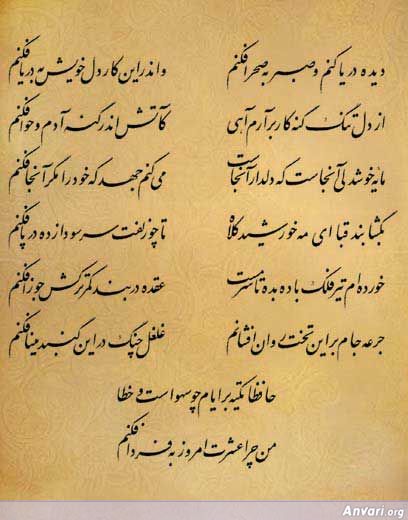 دیده دریا کنم و صبر به صحرا فکنم واندر این کار دل خویش به دریا فکنم
از دل تنگ گنه کار برآرم آهی کآتش اندر گنه آدم و حوا فکنم
مایه خوشدلی آنجاست که دلدار آنجاست می کنم جهد که خود را مگر آنجا فکنم
بگشا بند قبا ای مه خورشید کلاه تا چو زلفت سر سودا زده در پا فکنم
خورده ام تیر فلک باده بده تا سرمست عقده در بند کمر ترکش جوزا فکنم
جرعه جام بر این تخت روان افشانم غلغل چنگ در این گنبد مینا فکنم
حافظا تکیه بر ایام چو سهو است و خطا
من چرا عشرت امروز به فردا فکنم
Anvari.org